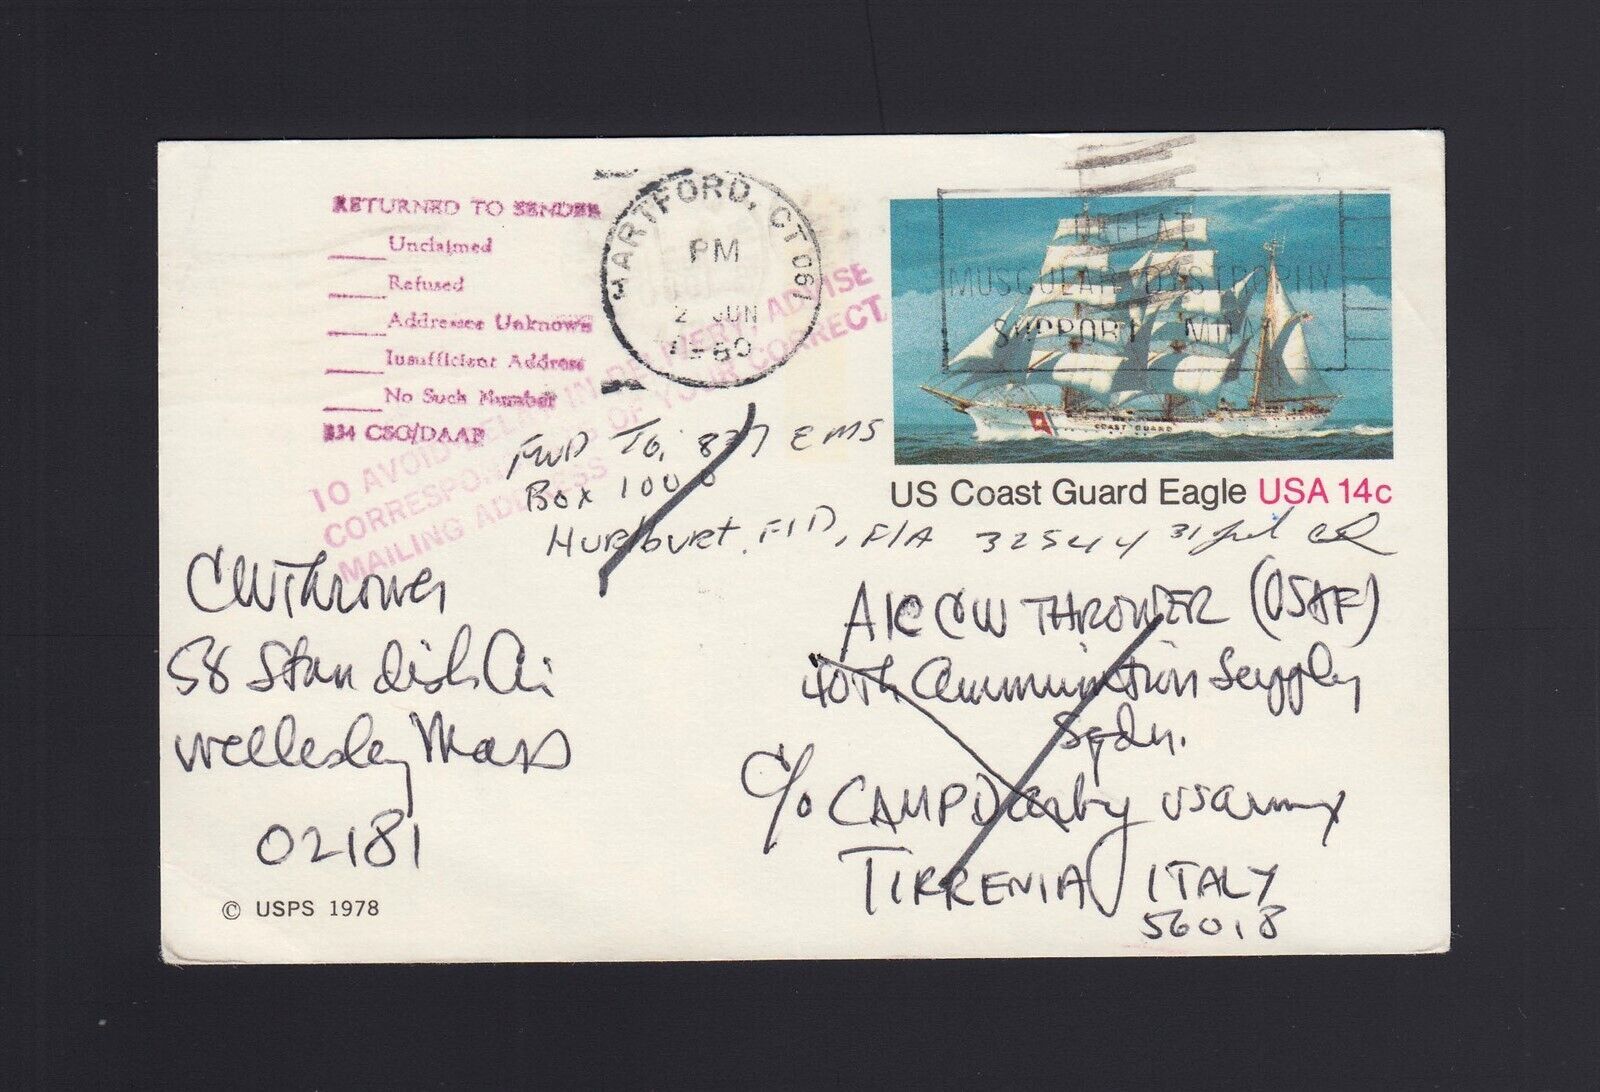 RETURNED TO SENDER
____Unclaimed
____Refused
____Addressee Unknown
____Insufficient Address
____No Such Number
334 CSG/DAAP
HARTFORD, CT 061
PM
2 JUN
1980
DEFEAT
MUSCULAR DYSTROPHY
SUPPORT MDA
TO AVOID DELAY IN DELIVERY, ADVISE
CORRESPONDENTS OF YOUR CORRECT
MAILING ADDRESS
COAST GUARD
US Coast Guard Eagle USA 14c
FWD TO, 837 EMS
Box 1000
Hurlburt, FLD, FlA 32544 31 Jul
CW Thrower
58 Standish
Wellesley Mass
02181
© USPS 1978
A1C CW THROWER (USAF)
40th Ammunition Supply
Sqdn.
c/o CAMP Darby US Army
TIRRENIA ITALY
56018